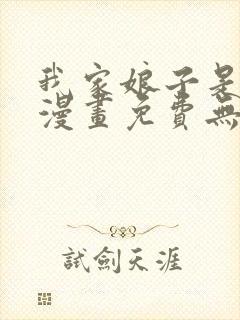 我家娘子是
漫畫免費無
試劍天涯